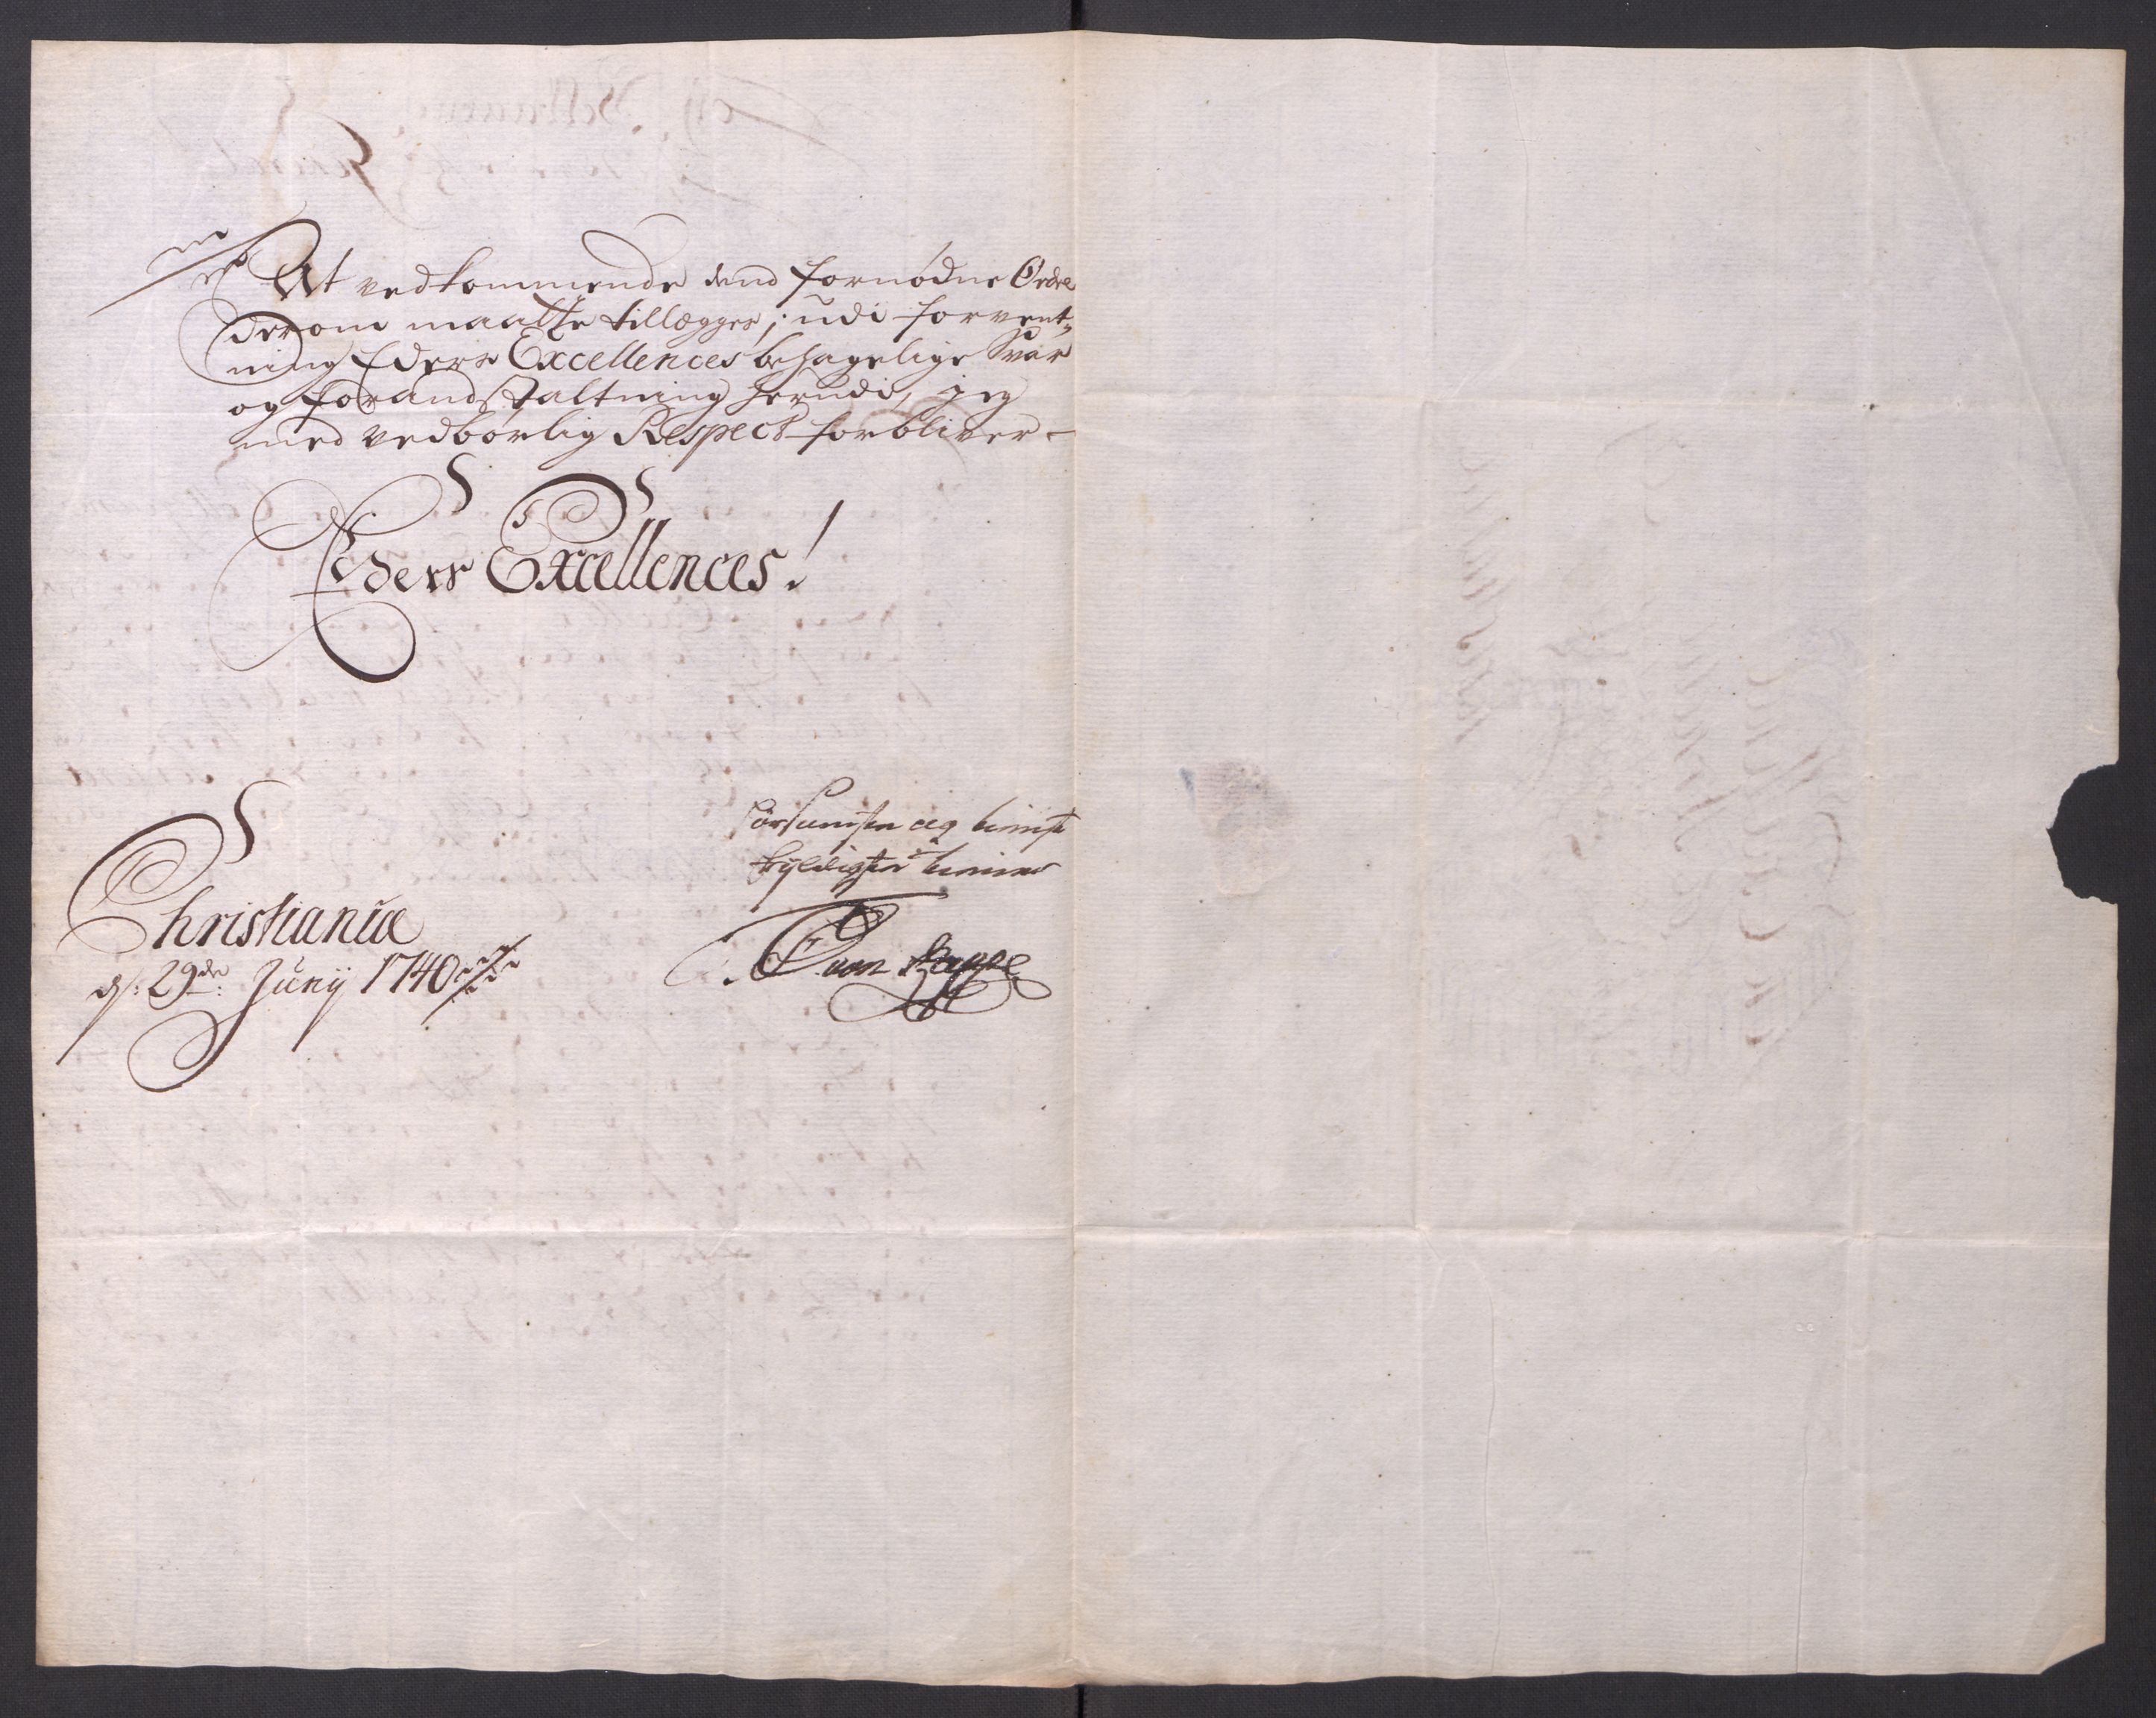 At vedkommende dend fornødne Ordre
derom maatte tillægges; udi forvent-
ning Eders Excellences behagelige Svar
og forandstaltning herudi, jeg
med vedbørlig Respect forbliver -
Eders Excellences!
Christiania
d: 29de Junij 1740
skyldigste tienner
von